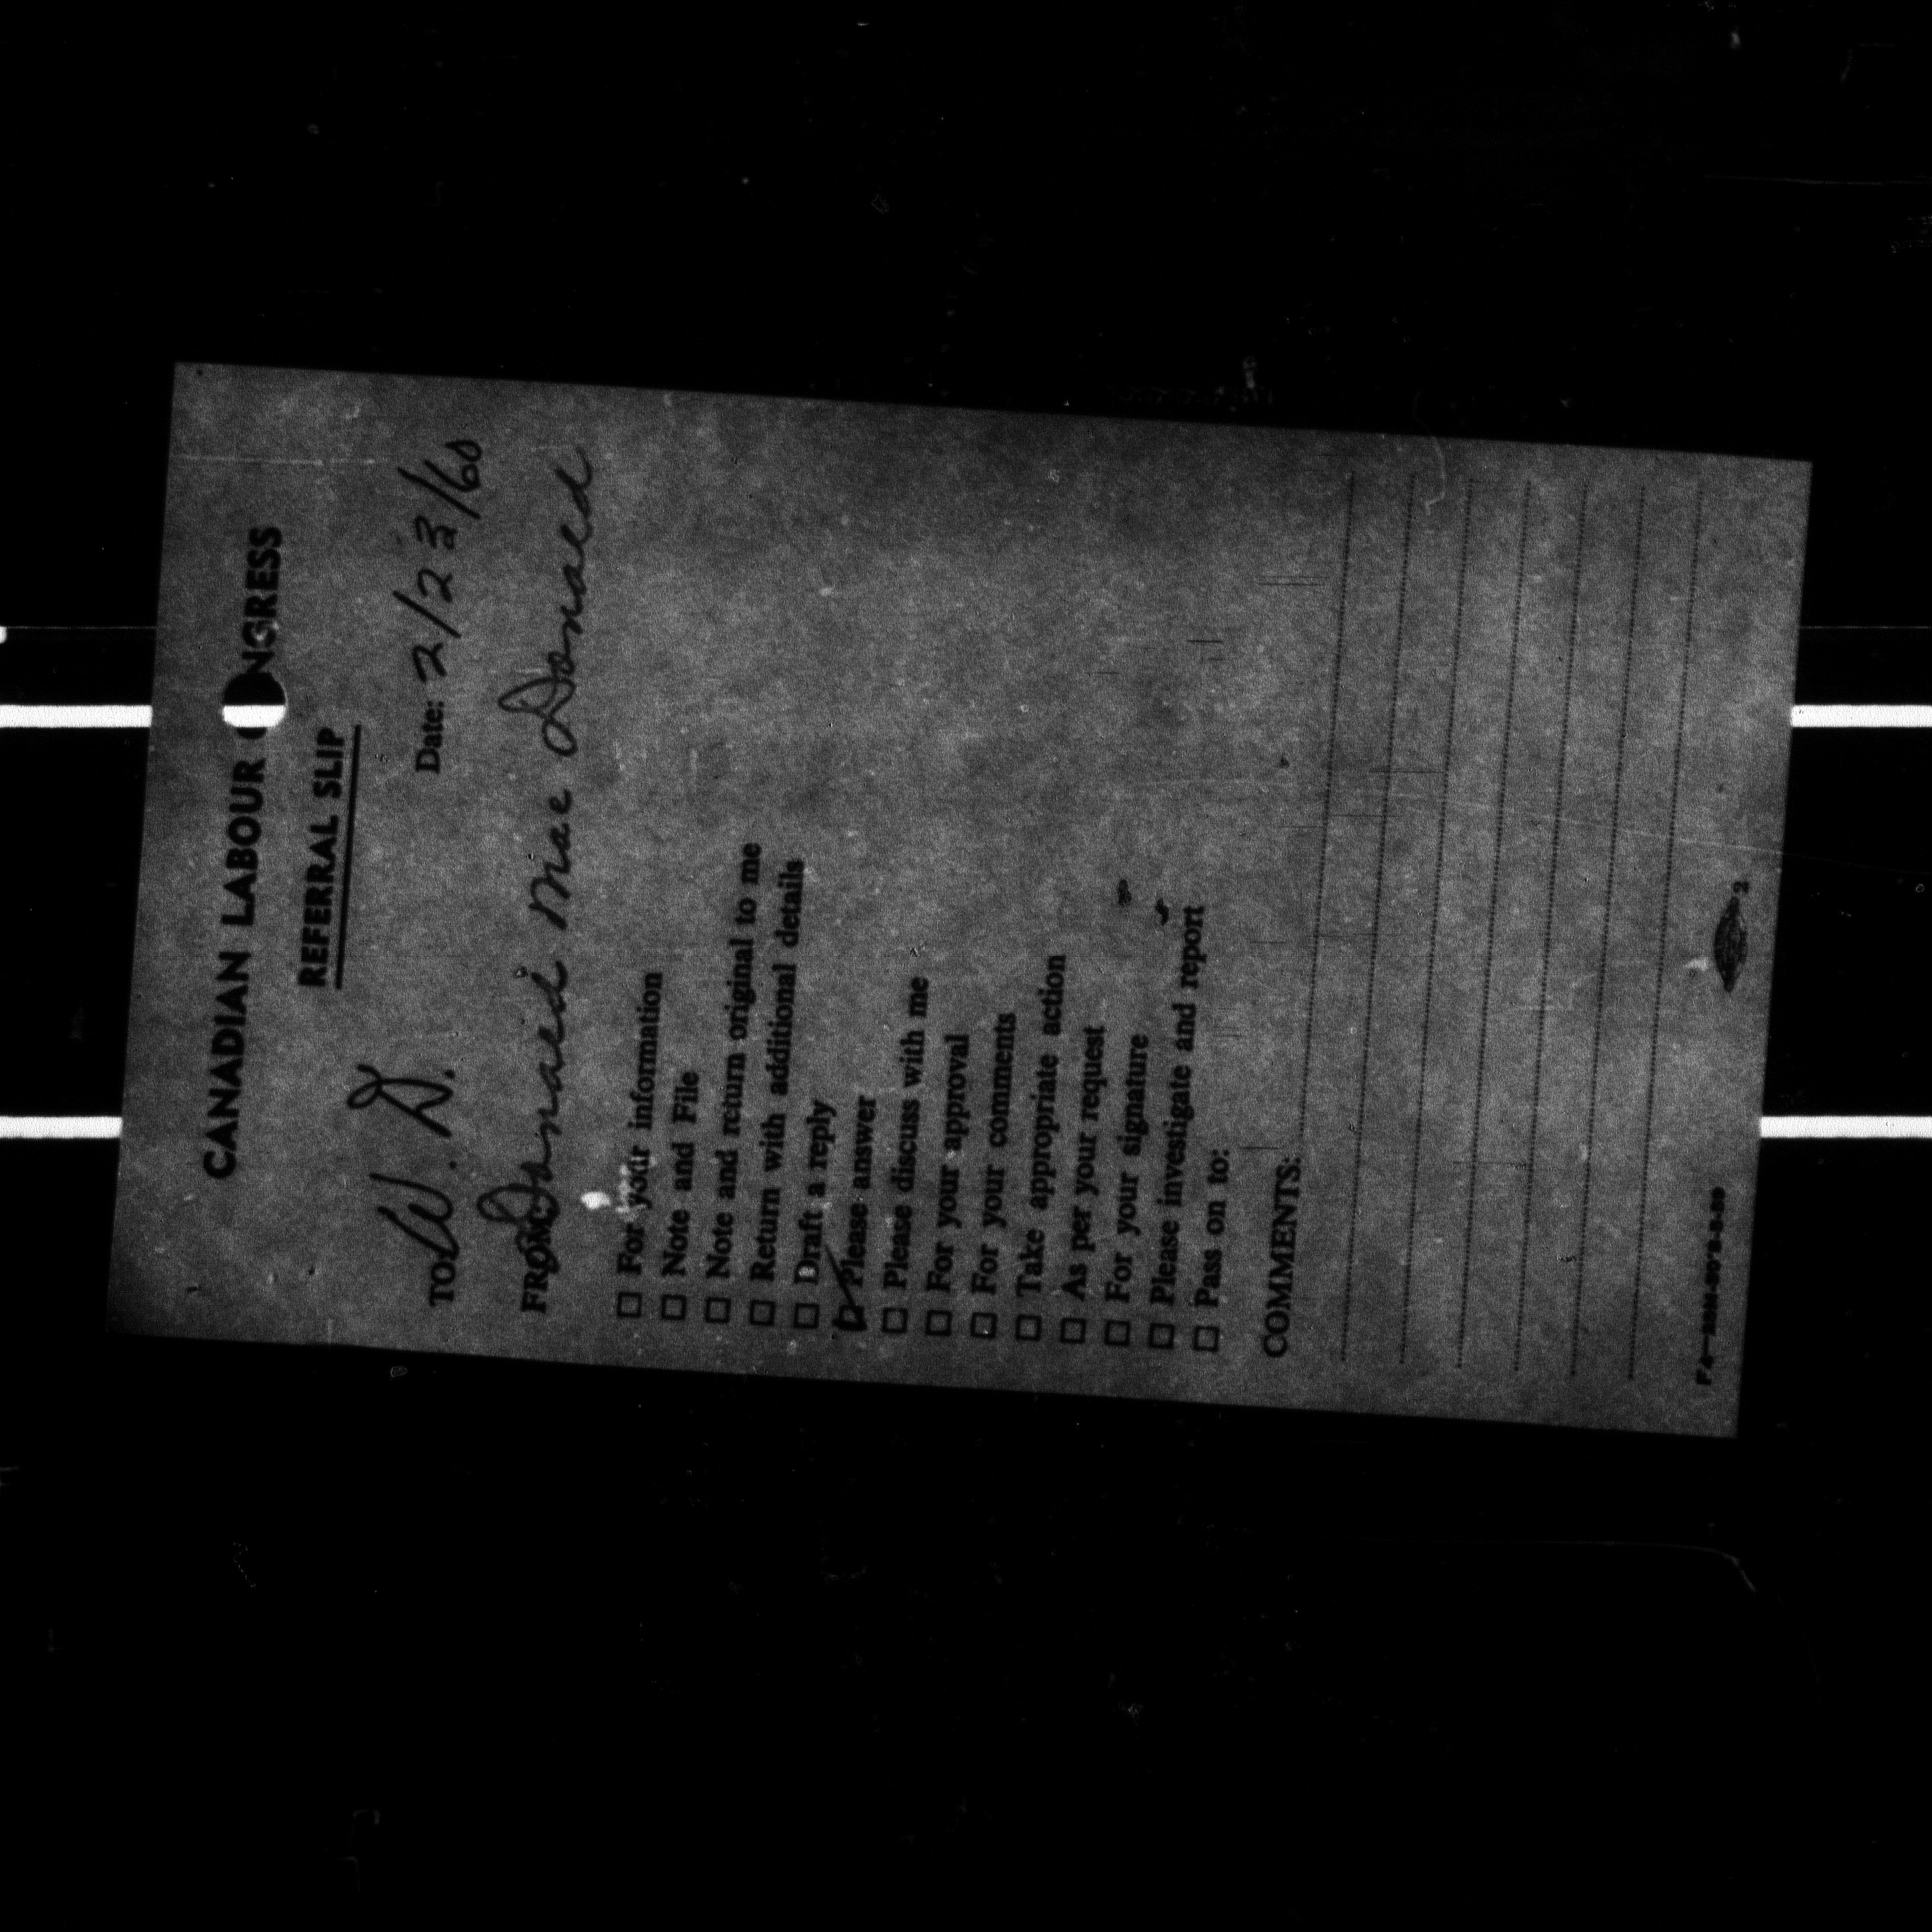 CANADIAN LABOUR CONGRESS
REFERRAL SLIP
TO: W. D. Date: 2/23/60
FROM: Donald Mac Donald
☐ For your information
☐ Note and File
☐ Note and return original to me
☐ Return with additional details
☐ Draft a reply
☑ Please answer
☐ Please discuss with me
☐ For your approval
☐ For your comments
☐ Take appropriate action
☐ As per your request
☐ For your signature
☐ Please investigate and report
☐ Pass on to:
COMMENTS:
2